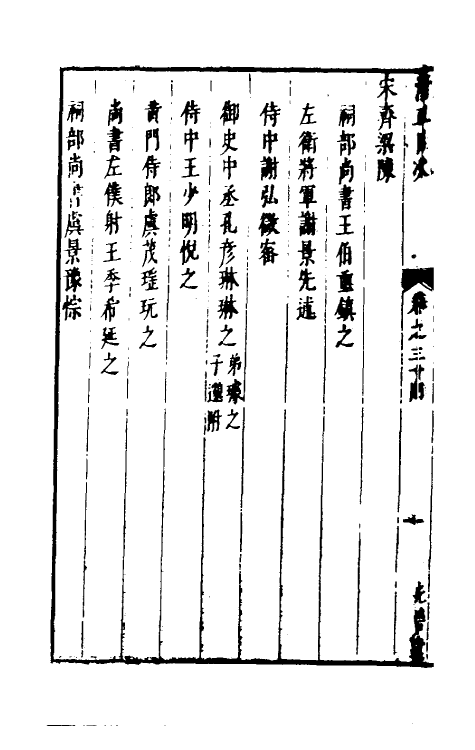 宋齊梁陳
祠部尚書王伯重鎮之
左衛將軍謝景先述
侍中謝弘微密
御史中丞孔彥琳琳之
弟璩之
子邈附
侍中王少明悅之
黃門侍郎虞茂瑤玩之
尚書左僕射王季希延之
祠部尚書虞景豫悰
卷之三
十